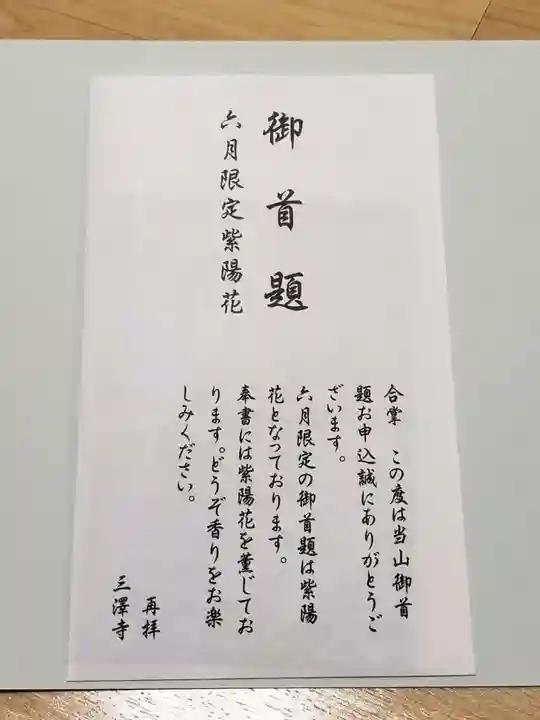 御首題
六月限定紫陽花
合掌　この度は当山御首
題お申込誠にありがとうご
ざいます。
六月限定の御首題は紫陽
花となっております。
奉書には紫陽花を薫じてお
ります。どうぞ香りをお楽
しみください。
再拝
三澤寺